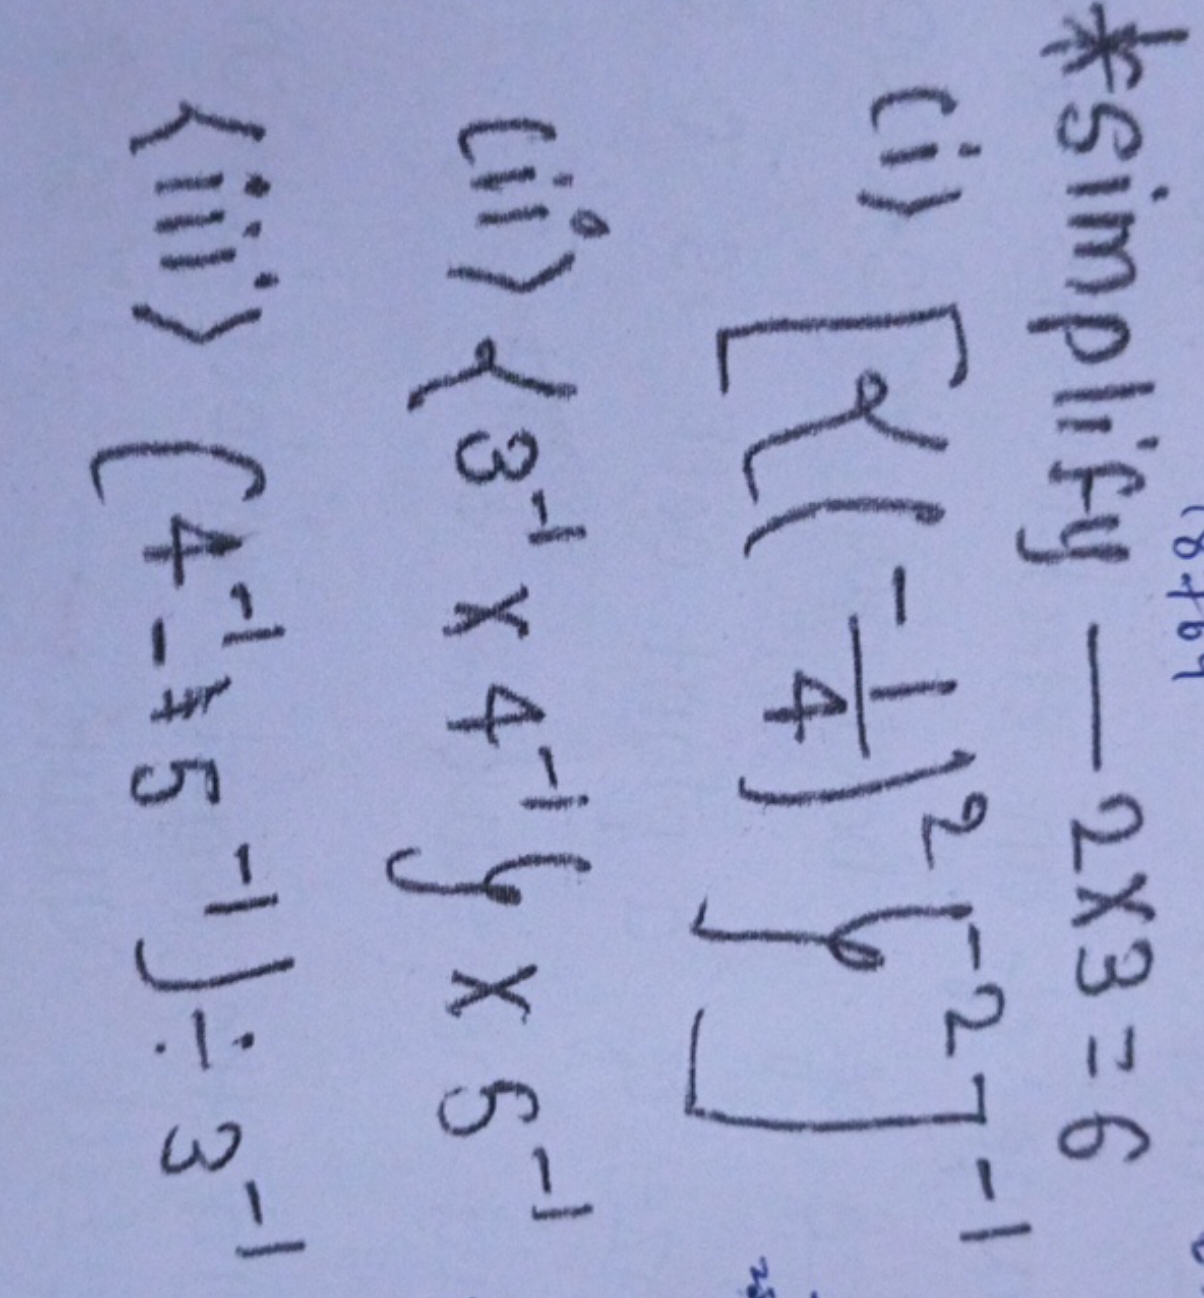 *Simplify — 2×3=6
(i) [{(-1/4)²}⁻²]⁻¹
(ii) {3⁻¹ × 4⁻¹} × 5⁻¹
(iii) (4⁻¹ - 5⁻¹) ÷ 3⁻¹